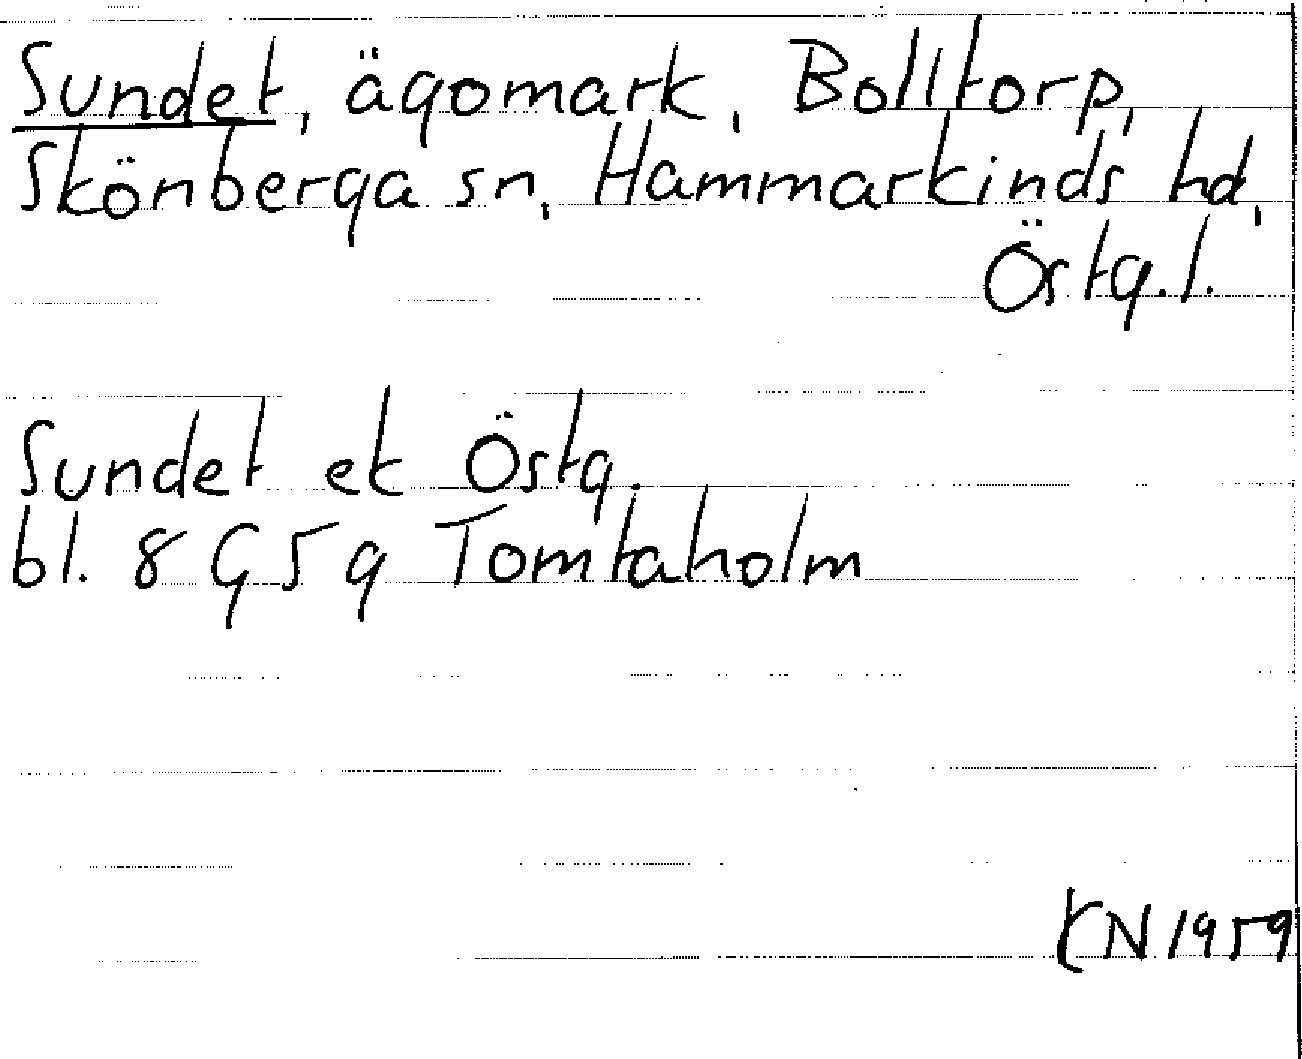 Sundet, ägomark, Bolltorp,
Skönberga sn, Hammarkinds hd,
Östg.l.
Sundet ek Östg.
bl. 8 G 5 g Tomtaholm
KN 1959